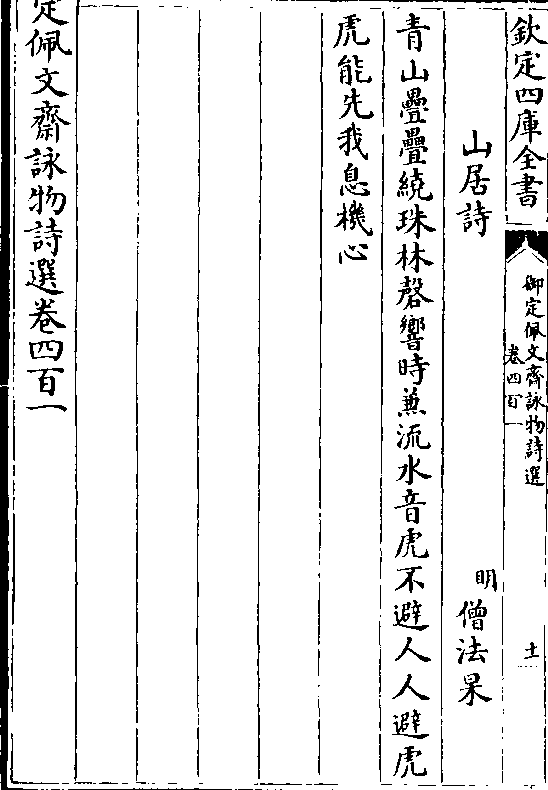 欽定四庫全書
御定佩文齋詠物詩選
卷四百一
土
山居詩
明
僧法杲
青山疊疊繞珠林磬響時兼流水音虎不避人人避虎
虎能先我息機心
定佩文齋詠物詩選卷四百一